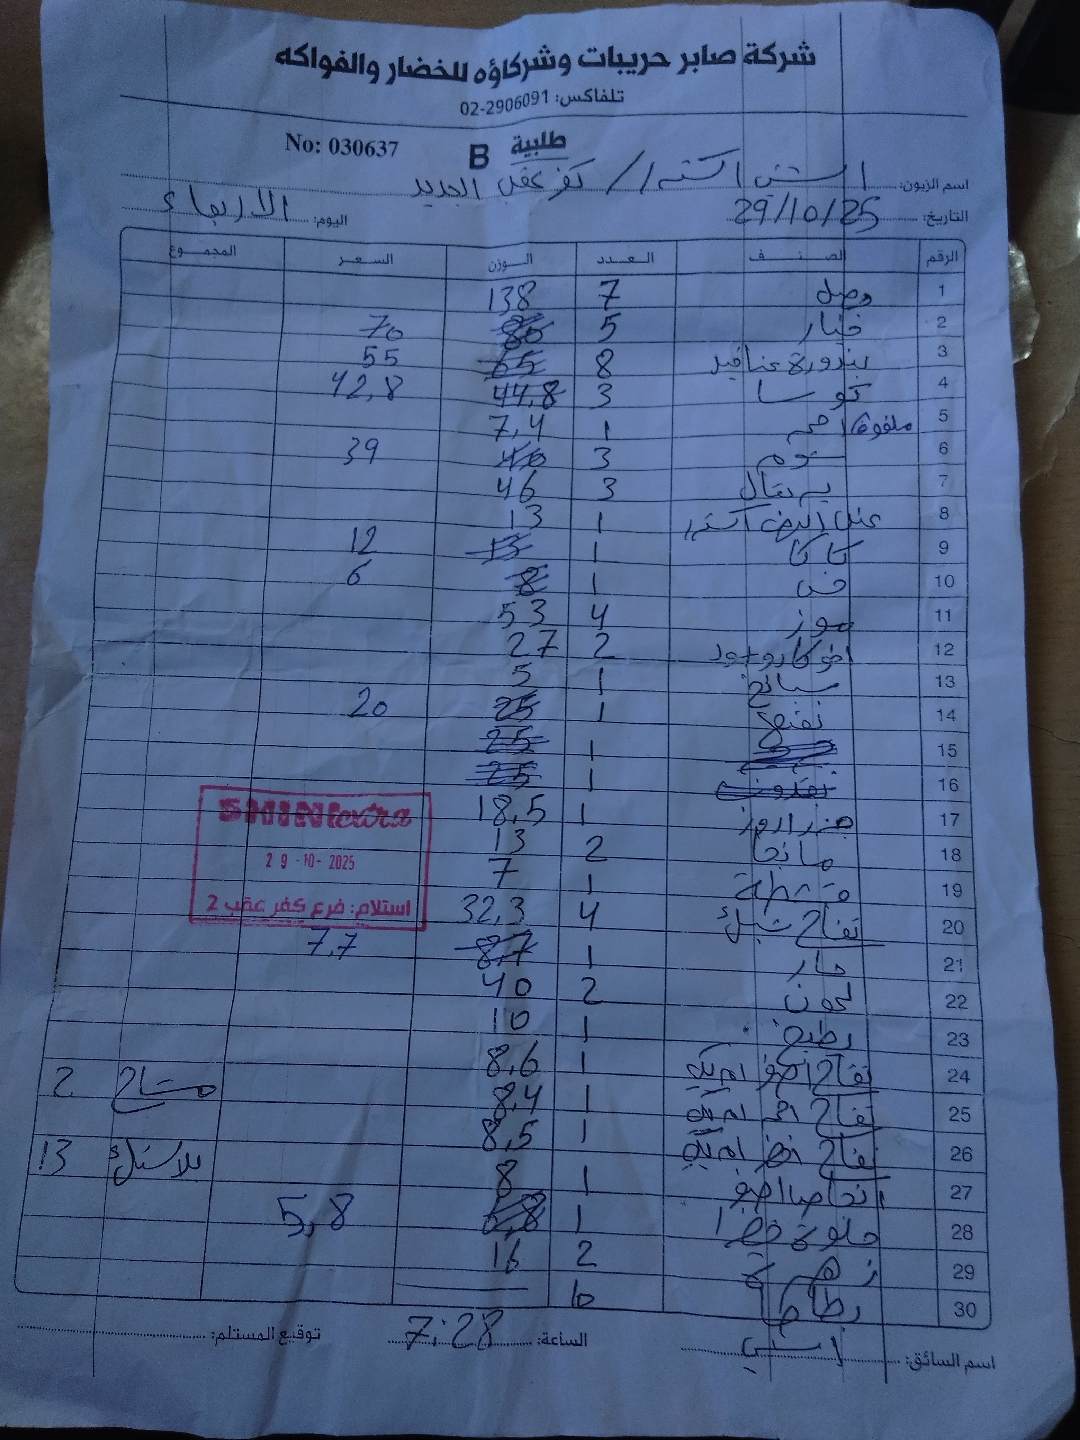 شركة صابر حريبات وشركاؤه للخضار والفواكه
تلفاكس: 02-2906091
No: 030637 B طلبية
اسم الزبون: اكسترا // كفر عقب الجديد
التاريخ: 29/10/25 اليوم: الاربعاء
الرقم الصنف العدد الوزن السعر المجموع
1 بصل 7 138
2 خيار 5 80 70
3 بندورة عناقيد 8 65 55
4 كوسا 3 44,8 42,8
5 ملفوف احمر 1 7,4
6 ثوم 3 40 39
7 برتقال 3 46
8 عنب اكسترا 1 13
9 كاكا 1 13 12
10 خس 1 8 6
11 موز 4 53
12 افوكادو 2 27
13 سبانخ 1 5
14 نعنع 1 25 20
15 1 25
16 بقدونس 1 25
17 جزر 1 18,5
18 مانجا 2 13
19 قشطة 1 7
20 تفاح 4 32,3
21 خيار 1 8,7 7,7
22 ليمون 2 40
23 بطيخ 1 10
24 تفاح اصفر امريكي 1 8,6
25 تفاح احمر امريكي 1 8,4 مشتاح 2
26 تفاح اخضر امريكي 1 8,5
27 انجاص اصفر 1 8 بلاستيك 13
28 حلوة خضرا 1 6,8 5,8
29 زهرة 2 16
30 بطاطا 6
SHINI extra
29-10-2025
استلام: فرع كفر عقب 2
اسم السائق: الساعة: 7:28 توقيع المستلم: